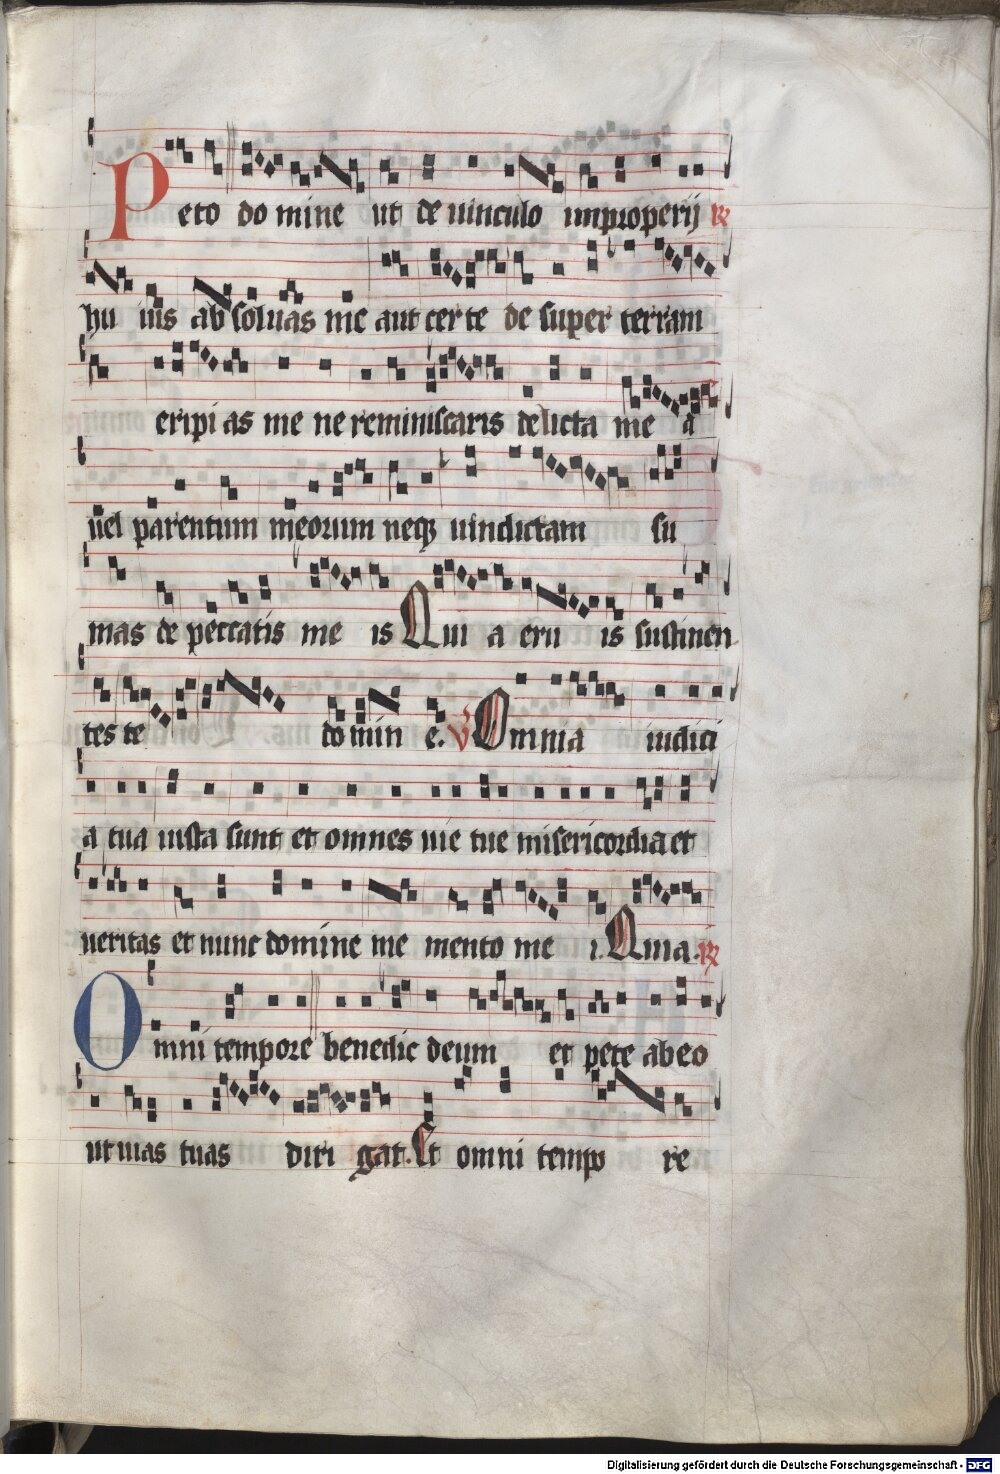 Peto domine ut de uinculo improperij R
hu ius absoluas me aut certe de super terram
eripi as me ne reminiscaris delicta me a
uel parentum meorum neqz uindictam su
mas de peccatis me is Qui a eru is sustinen
tes te domin e. V Omnia iudici
a tua iusta sunt et omnes uie tue misericordia et
ueritas et nunc domine me mento me i. Quia. R
Omni tempore benedic deum et pete ab eo
ut uias tuas diri gat. Et omni tempo re
Digitalisierung gefördert durch die Deutsche Forschungsgemeinschaft - DFG